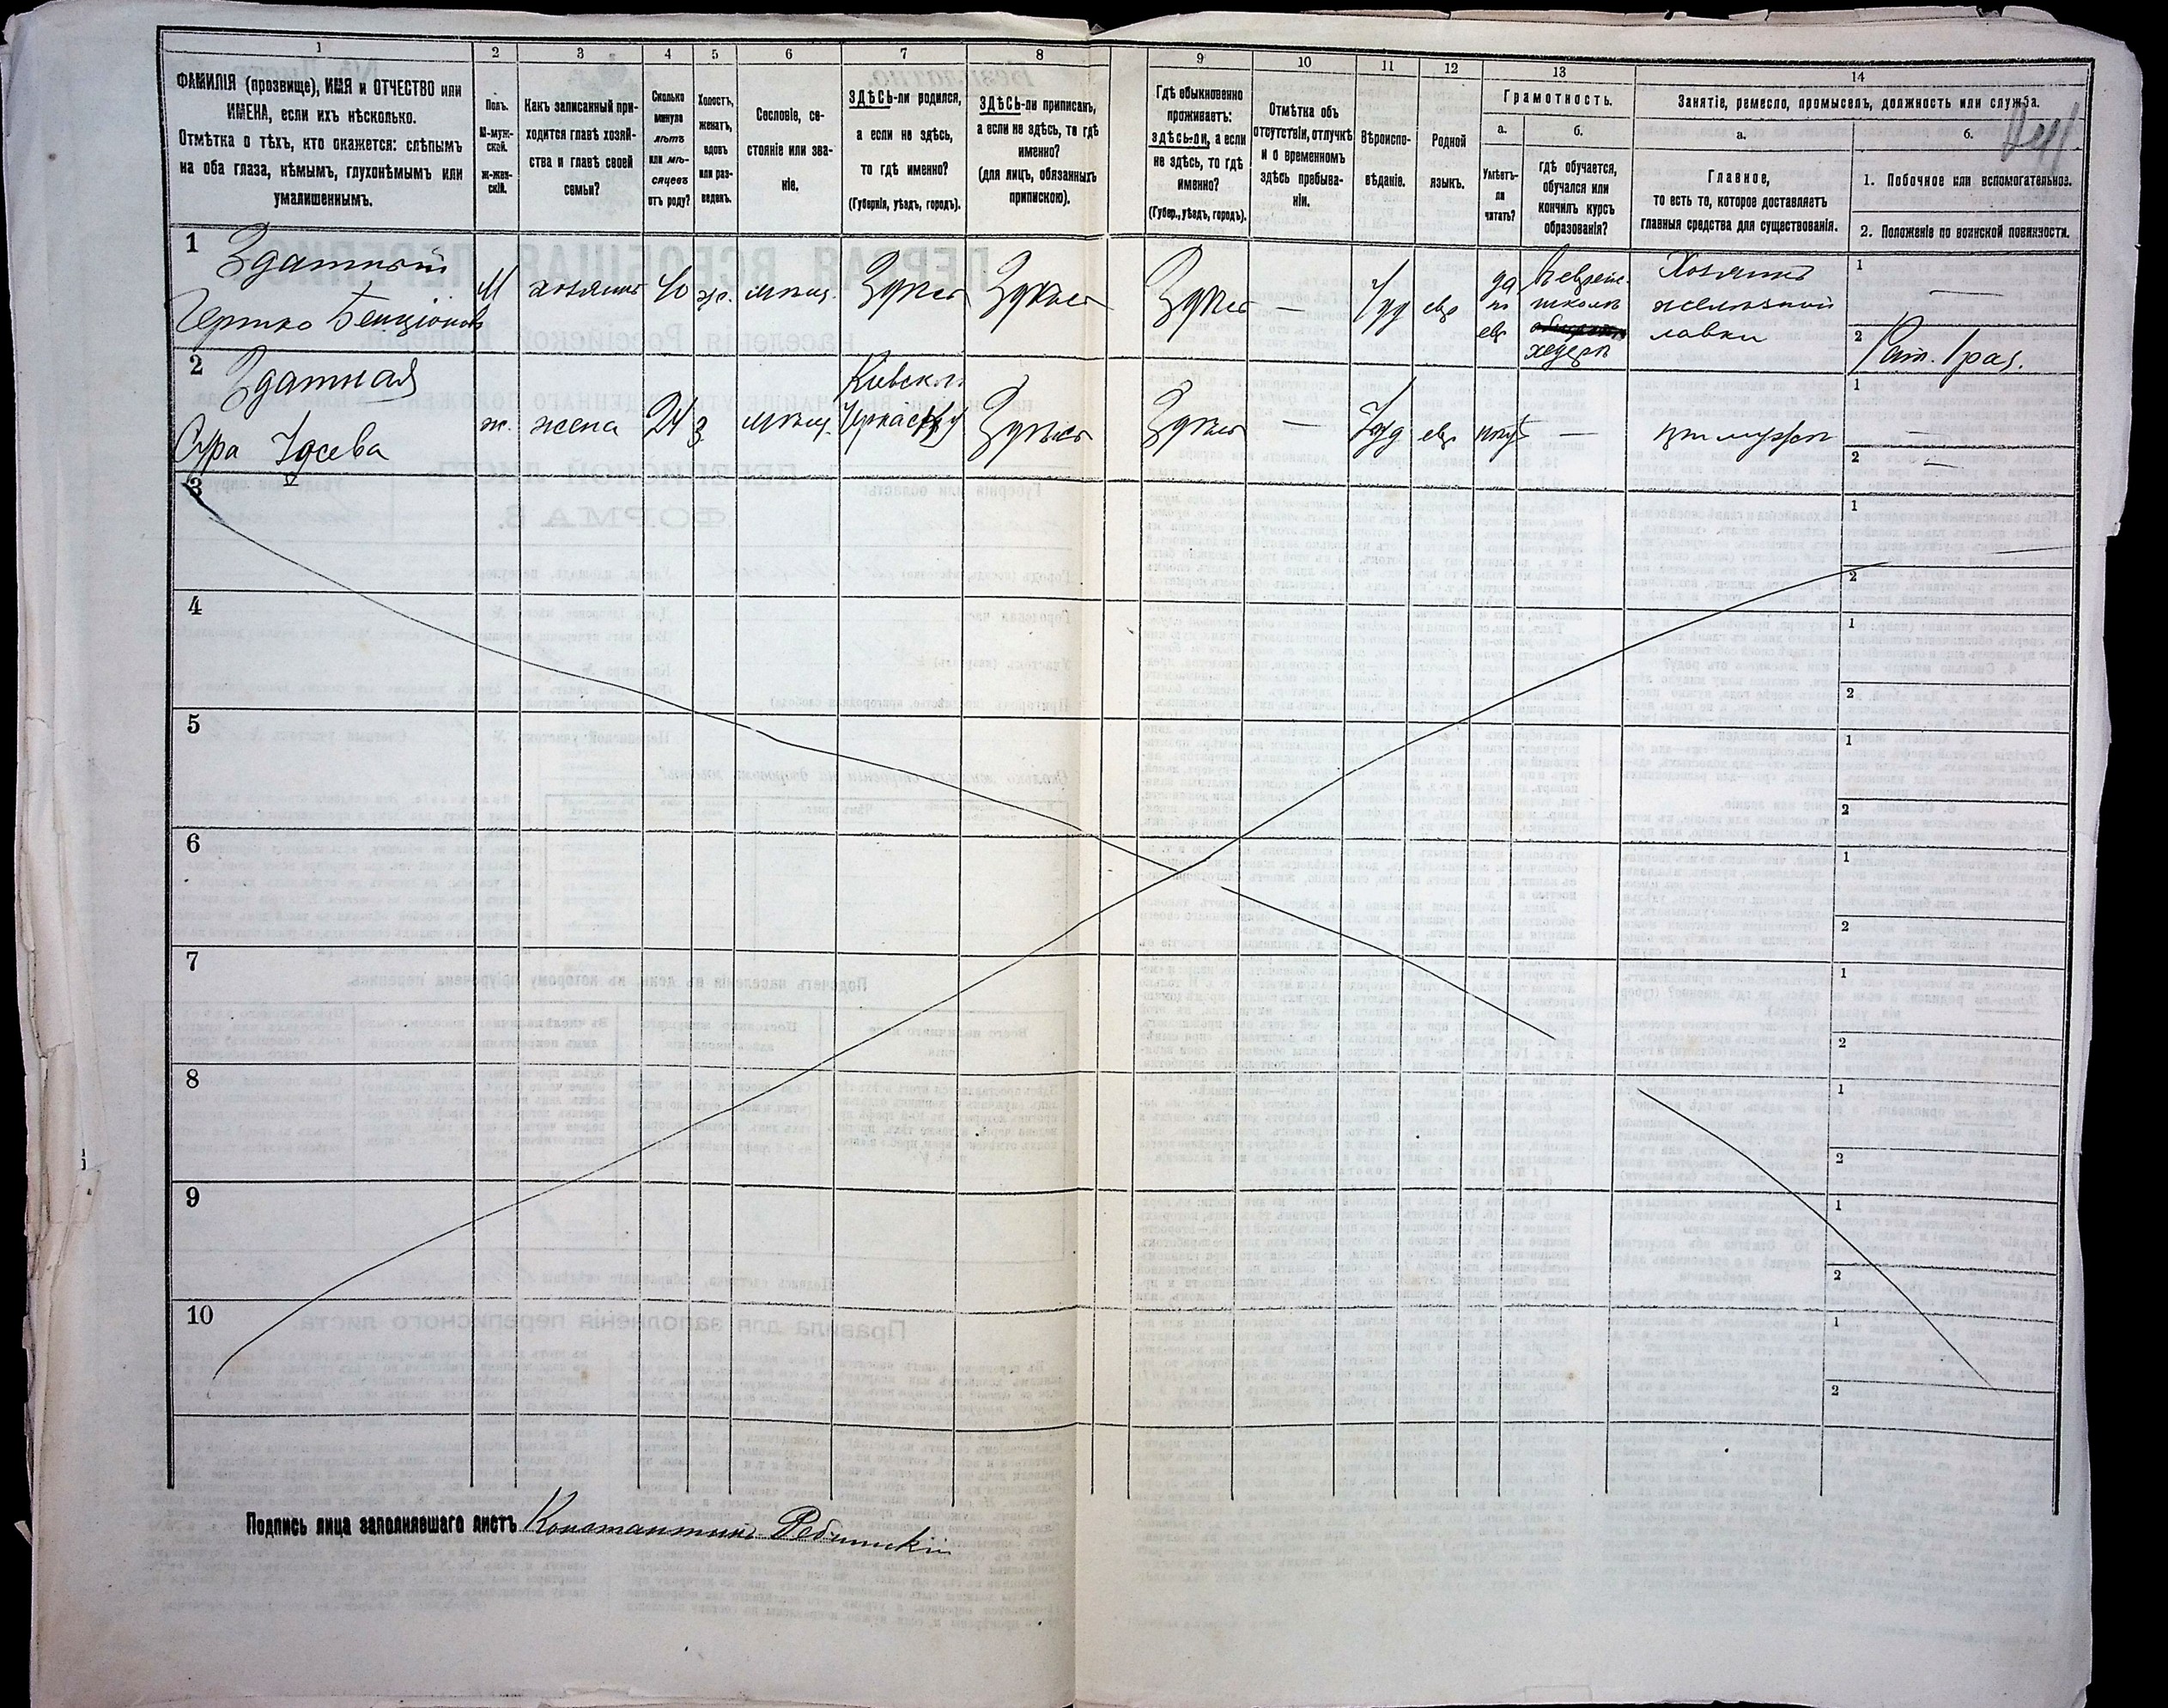 1 2 3 4 5 6 7 8 9 10 11 12 13 14
ФАМИЛІЯ (прозвище), ИМЯ и ОТЧЕСТВО или
ИМЕНА, если ихъ нѣсколько.
Отмѣтка о тѣхъ, кто окажется: слѣпымъ
на оба глаза, нѣмымъ, глухонѣмымъ или
умалишеннымъ.
Полъ.
М-муж-
ской.
ж-жен-
скій.
Какъ записанный при-
ходится главѣ хозяй-
ства и главѣ своей
семьи?
Сколько
минуло
лѣтъ
или мѣ-
сяцевъ
отъ роду?
Холостъ,
женатъ,
вдовъ
или раз-
веденъ.
Сословіе, со-
стояніе или зва-
ніе.
ЗДѢСЬ-ли родился,
а если не здѣсь,
то гдѣ именно?
(Губернія, уѣздъ, городъ).
ЗДѢСЬ-ли приписанъ,
а если не здѣсь, то гдѣ
именно?
(для лицъ, обязанныхъ
припискою).
Гдѣ обыкновенно
проживаетъ:
ЗДѢСЬ-ли, а если
не здѣсь, то гдѣ
именно?
(Губер., уѣздъ, городъ).
Отмѣтка объ
отсутствіи, отлучкѣ
и о временномъ
здѣсь пребыва-
ніи.
Вѣроиспо-
вѣданіе.
Родной
языкъ.
Грамотность.
а.
Умѣетъ-
ли
читать?
б.
гдѣ обучается,
обучался или
кончилъ курсъ
образованія?
Занятіе, ремесло, промыселъ, должность или служба.
а.
Главное,
то есть то, которое доставляетъ
главныя средства для существованія.
б.
1. Побочное или вспомогательное.
2. Положеніе по воинской повинности.
1
Здатный
Гершко Бенціоновъ
М
хозяинъ
40
ж.
мѣщ.
Здѣсь
Здѣсь
Здѣсь
—
Іуд
евр
да
по
евр
Въ еврейс.
школѣ
хедерѣ
Хозяинъ
желѣзной
лавки
1 —
2 Рат. 1 раз.
2
Здатная
Сура
ж.
жена
24
З.
мѣщ.
Кіевск.
Здѣсь
Здѣсь
—
Іуд
евр
нѣтъ
—
при мужѣ
1 —
2 —
3
1
2
4
1
2
5
1
2
6
1
2
7
1
2
8
1
2
9
1
2
10
1
2
Подпись лица заполнявшаго листъ Константинъ